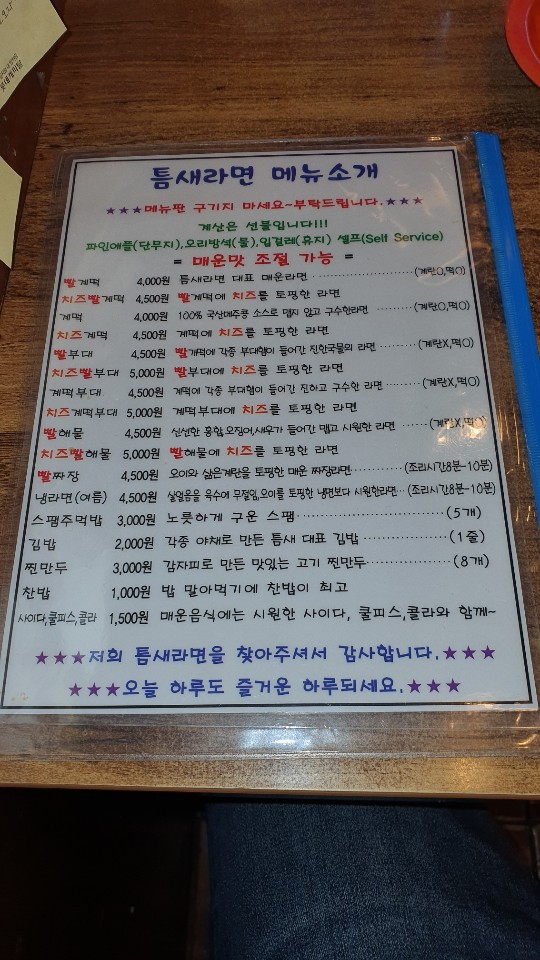 틈새라면 메뉴소개
★★★메뉴판 구기지 마세요~부탁드립니다.★★★
계산은 선불입니다!!!
파인애플(단무지),오리방석(물),입걸레(휴지) 셀프(Self Service)
= 매운맛 조절 가능 =
빨계떡 4,000원 틈새라면 대표 매운라면 (계란O,떡O)
치즈빨계떡 4,500원 빨계떡에 치즈를 토핑한 라면
계떡 4,000원 100% 국산메주콩 소스로 맵지 않고 구수한라면 (계란O,떡O)
치즈계떡 4,500원 계떡에 치즈를 토핑한 라면
빨부대 4,500원 빨계떡에 각종 부대햄이 들어간 진한국물의 라면 (계란X,떡O)
치즈빨부대 5,000원 빨부대에 치즈를 토핑한 라면
계떡부대 4,500원 계떡에 각종 부대햄이 들어간 진하고 구수한 라면 (계란X,떡O)
치즈계떡부대 5,000원 계떡부대에 치즈를 토핑한 라면
빨해물 4,500원 신선한 홍합,오징어,새우가 들어간 맵고 시원한 라면 (계란X,떡O)
치즈빨해물 5,000원 빨해물에 치즈를 토핑한 라면
빨짜장 4,500원 오이와 삶은계란을 토핑한 매운 짜장라면 (조리시간8분-10분)
냉라면(여름) 4,500원 살얼음을 육수에 무절임,오이를 토핑한 냉면보다 시원한라면 (조리시간8분-10분)
스팸주먹밥 3,000원 노릇하게 구운 스팸 (5개)
김밥 2,000원 각종 야채로 만든 틈새 대표 김밥 (1줄)
찐만두 3,000원 감자피로 만든 맛있는 고기 찐만두 (8개)
찬밥 1,000원 밥 말아먹기에 찬밥이 최고
사이다,쿨피스,콜라 1,500원 매운음식에는 시원한 사이다, 쿨피스,콜라와 함께~
★★★저희 틈새라면을 찾아주셔서 감사합니다.★★★
★★★오늘 하루도 즐거운 하루되세요.★★★